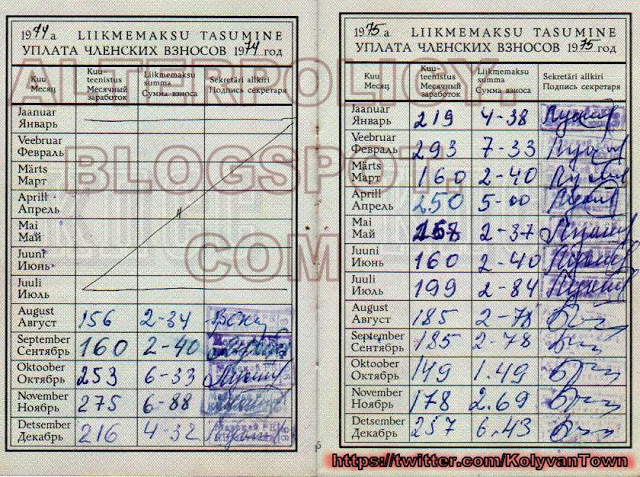 1974 а. LIIKMEMAKSU TASUMINE
УПЛАТА ЧЛЕНСКИХ ВЗНОСОВ 1974 год
Kuu Kuuteenistus Liikmemaksu summa Sekretäri allkiri
Месяц Месячный заработок Сумма взноса Подпись секретаря
Jaanuar
Январь
Veebruar
Февраль
Märts
Март
Aprill
Апрель
Mai
Май
Juuni
Июнь
Juuli
Июль
August
Август 156 2-34
September
Сентябрь 160 2-40
Oktoober
Октябрь 253 6-33
November
Ноябрь 275 6-88
Detsember
Декабрь 216 4-32
1975 a. LIIKMEMAKSU TASUMINE
УПЛАТА ЧЛЕНСКИХ ВЗНОСОВ 1975 год
Kuu Kuuteenistus Liikmemaksu summa Sekretäri allkiri
Месяц Месячный заработок Сумма взноса Подпись секретаря
Jaanuar
Январь 219 4-38
Veebruar
Февраль 293 7-33
Märts
Март 160 2-40
Aprill
Апрель 250 5-00
Mai
Май 2-37
Juuni
Июнь 160 2-40
Juuli
Июль 199 2-84
August
Август 185 2-78
September
Сентябрь 185 2-78
Oktoober
Октябрь 149 1.49
November
Ноябрь 178 2.69
Detsember
Декабрь 257 6.43
ALTERPOLICY.
BLOGSPOT.
COM
https://twitter.com/KolyvanTown